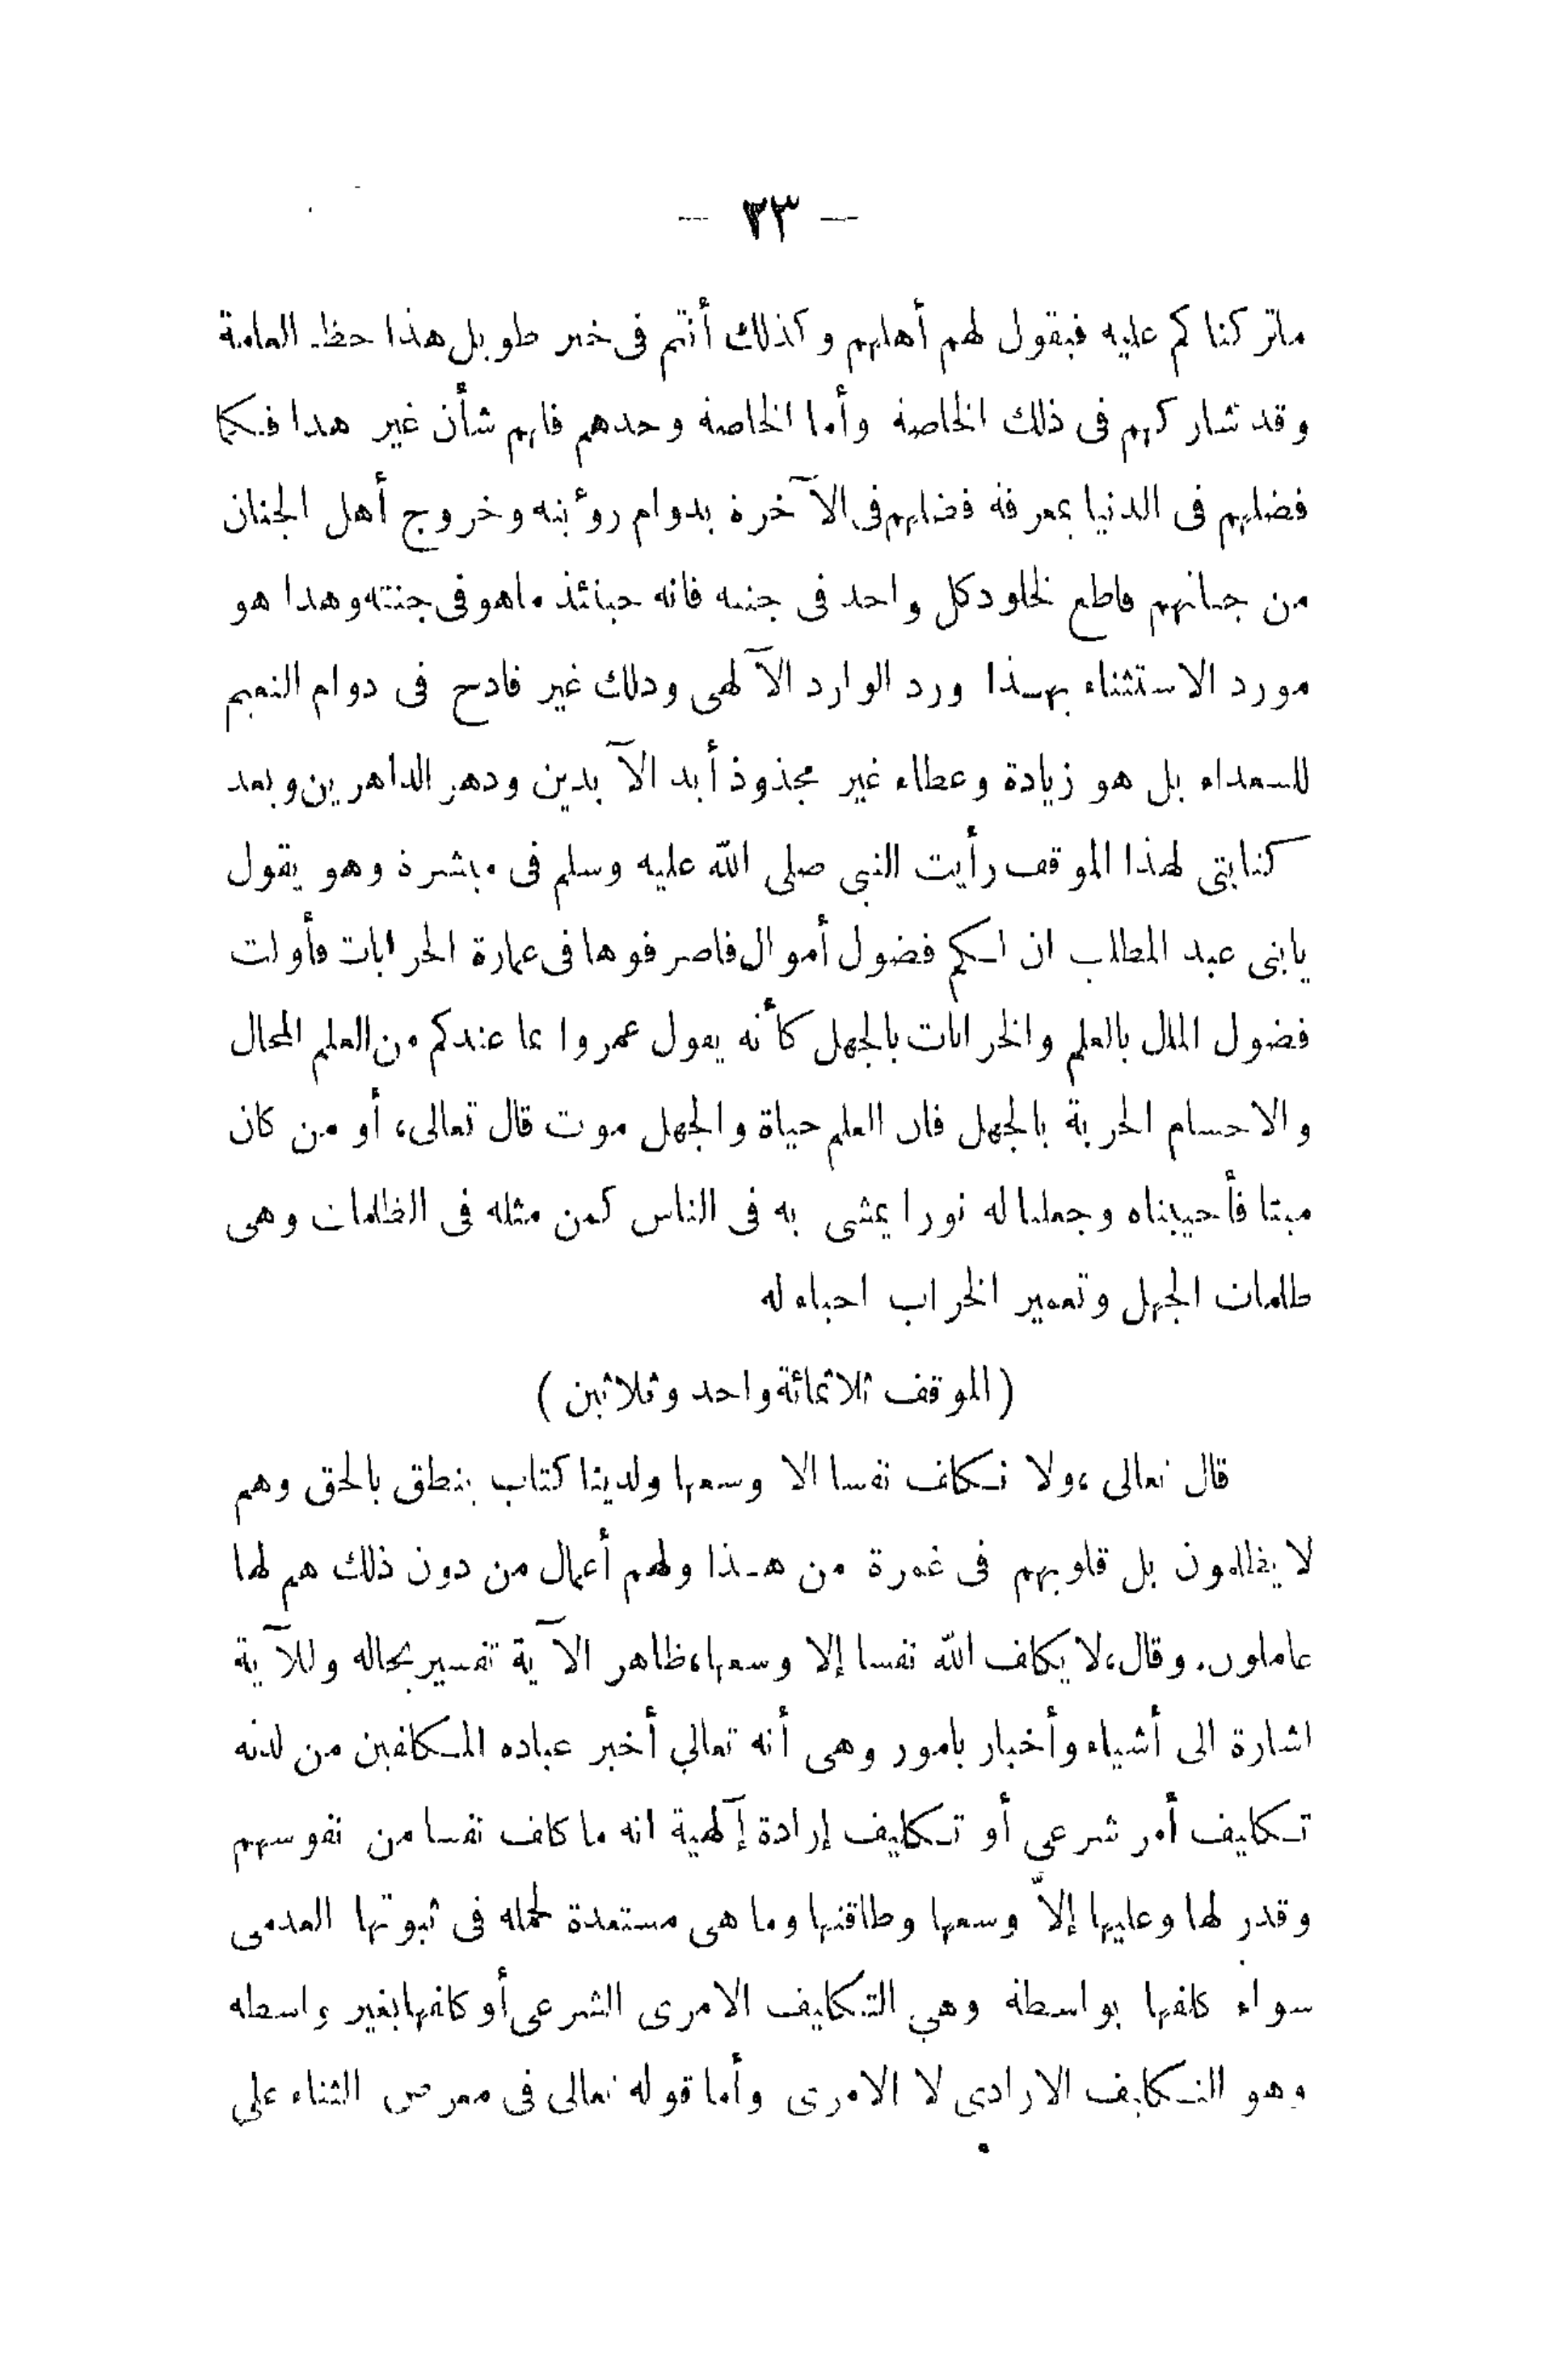 — ٢٣ —
ماتركناكم عليه فيقول لهم أهلهم وكذلك أنتم فى خبر طويل هذا حظ العامة
وقد تشاركهم فى ذلك الخاصة وأما الخاصة وحدهم فلهم شأن غير هذا فكما
فضلهم فى الدنيا بمعرفة فضلهم فى الآخرة بدوام رؤيته وخروج أهل الجنان
من جناتهم قاطع لخلود كل واحد فى جنته فانه حينئذ ماهو فى جنته وهذا هو
مورد الاستثناء بهذا ورد الوارد الآلهى وذلك غير قادح فى دوام النعيم
للسعداء بل هو زيادة وعطاء غير مجذوذ أبد الآبدين ودهر الداهرين وبعد
كتابتى لهذا الموقف رأيت النبى صلى الله عليه وسلم فى مبشرة وهو يقول
يابنى عبد المطلب ان لكم فضول أموال فاصرفوها فى عمارة الخرابات فأولت
فضول المال بالعلم والخرابات بالجهل كأنه يقول عمروا بما عندكم من العلم المحال
والاجسام الخربة بالجهل فان العلم حياة والجهل موت قال تعالى، أو من كان
ميتا فأحييناه وجعلنا له نورا يمشى به فى الناس كمن مثله فى الظلمات وهى
ظلمات الجهل وتعمير الخراب احياء له
(الموقف ثلاثمائة واحد وثلاثين)
قال تعالى، ولا نكلف نفسا الا وسعها ولدينا كتاب ينطق بالحق وهم
لا يظلمون بل قلوبهم فى غمرة من هذا ولهم أعمال من دون ذلك هم لها
عاملون. وقال، لا يكلف الله نفسا إلا وسعها، ظاهر الآية تفسير بحاله وللآية
اشارة الى أشياء وأخبار بامور وهى أنه تعالي أخبر عباده المكلفين من لدنه
تكليف أمر شرعي أو تكليف إرادة إآلهية انه ما كلف نفسا من نفوسهم
وقدر لها وعليها إلاّ وسعها وطاقتها وما هى مستعدة لحمله فى ثبوتها العدمى
سواء كلفها بواسطة وهي التكليف الامرى الشرعى أو كلفها بغير واسطه
وهو التكليف الارادي لا الامرى وأما قوله تعالى فى معرض الثناء على